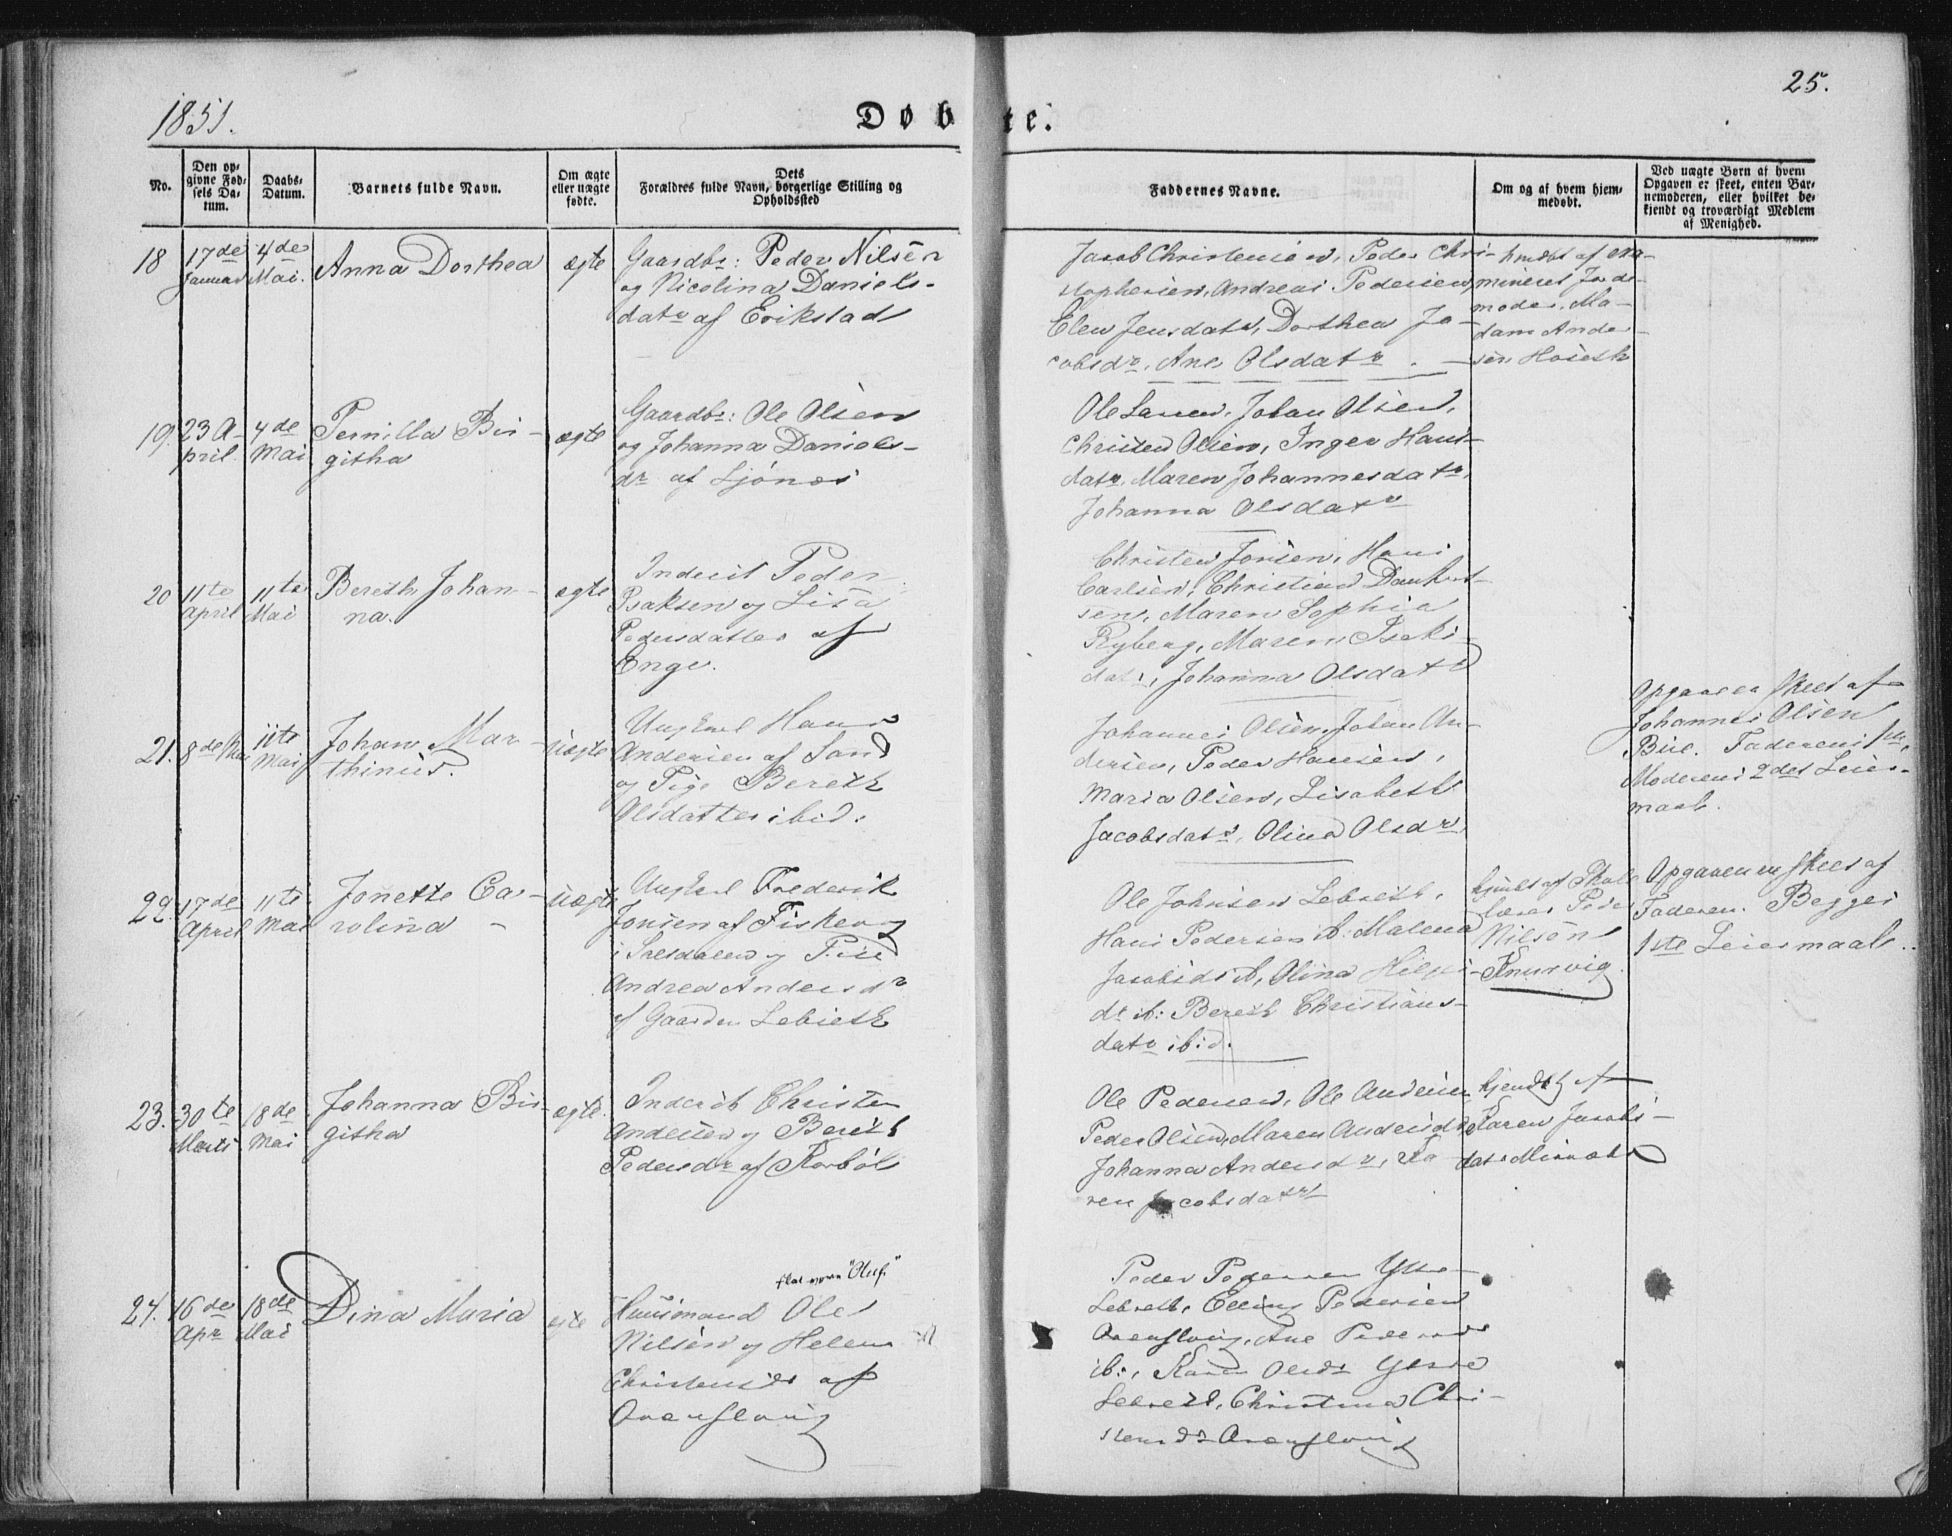 1851.
25.
Døbte.
No.
Den opgivne Fødsels Datum.
Daabs-Datum.
Barnets fulde Navn.
Om ægte eller uægte fødte.
Dets Forældres fulde Navn, borgerlige Stilling og Opholdssted
Faddernes Navne.
Om og af hvem hjemmedøbt.
Ved uægte Børn af hvem Opgaven er skeet, enten Barnemoderen, eller hvilket bekjendt og troværdigt Medlem af Menighed.
18
17de Januar
4de Mai.
Anna Dorthea
ægte
Gaardbr: Peder Nilsen
og Nicolina Daniels-
datr af Erikstad
Jacob Christensen, Peder Chri-
stophersen, Andreas Pedersen,
Elen Jensdatr, Dorthea Ja-
cobsdr, Ane Olsdatr
hmdbt af exa-
mineret Jorde-
moder Ma-
dam Ander-
sen
19.
23 April
4de Mai
Pernilla Bir-
githa
ægte
Gaardbr: Ole Olsen
og Johanna Daniels-
dr af Sjónes
Ole Larsen, Johan Olsen,
Christen Olsen, Inger Hans-
datr, Maren Johannesdatr,
Johanna Olsdatr
20
11te April
11te Mai
Bereth Johan-
na.
ægte
Inderst Peder
Isaksen og Lisa
Pedersdatter af
Enge.
Christen Jonsen, Hans
Carlsen, Christian
sen, Maren Sophia
Ryberg, Maren Isaks-
datr, Johanna Olsdatr
21.
8de Mai
11te Mai
Johan Mar-
thinus.
uægte
Ungkarl Hans
Andersen af Sand
og Pige Bereth
Olsdatter ibid.
Johannes Olsen, Johan An-
dersen, Peder Hansen,
Maria Olsen, Lisabeth
Jacobsdatr, Olina Olsdr
Opgaven skeet af
Johannes Olsen
Faderens 1ste,
Moderens 2det Leier-
maal.
22.
17de April
11te Mai
Jonette Ca-
rolina
uægte
Ungkarl Frederik
Jonsen af Fiskevog
i Saltdalen og Pige
Andrea Andersdr
af Gaarden Lebreth
Ole Johnsen Lebreth,
Hans Pedersen ib: Malena
Jacobsdr ib, Olina
dr ib: Bereth Christians-
datr ibid.
hjmbt af Skole-
lærer Peder
Nilsen
Knurvig.
Opgaven er skeet af
Faderen. Begges
1ste Leiermaal.
23.
30te Marts
18de Mai
Johanna Bir-
githa
ægte.
Inderst Christen
Andersen og Bereth
Pedersdr af Korbøl
Ole Pedersen, Ole Andersen
Peder Olsen, Maren Andersdr
Johanna Andersdr, Ka-
ren Jacobsdatr
hjemdbt af
Karen Jacobs-
datr
24.
16de Apr
18de Mai
Dina Maria
egte
"Oluf."
Huusmand Ole
Nilsen og Helena
Christensdr af
Peder Pedersen Ytre
Lebreth, Elling Pedersen
Ane Pedersdr
ib:, Karen Olsdr Ytre
Lebreth, Christina Chri-
stensdr